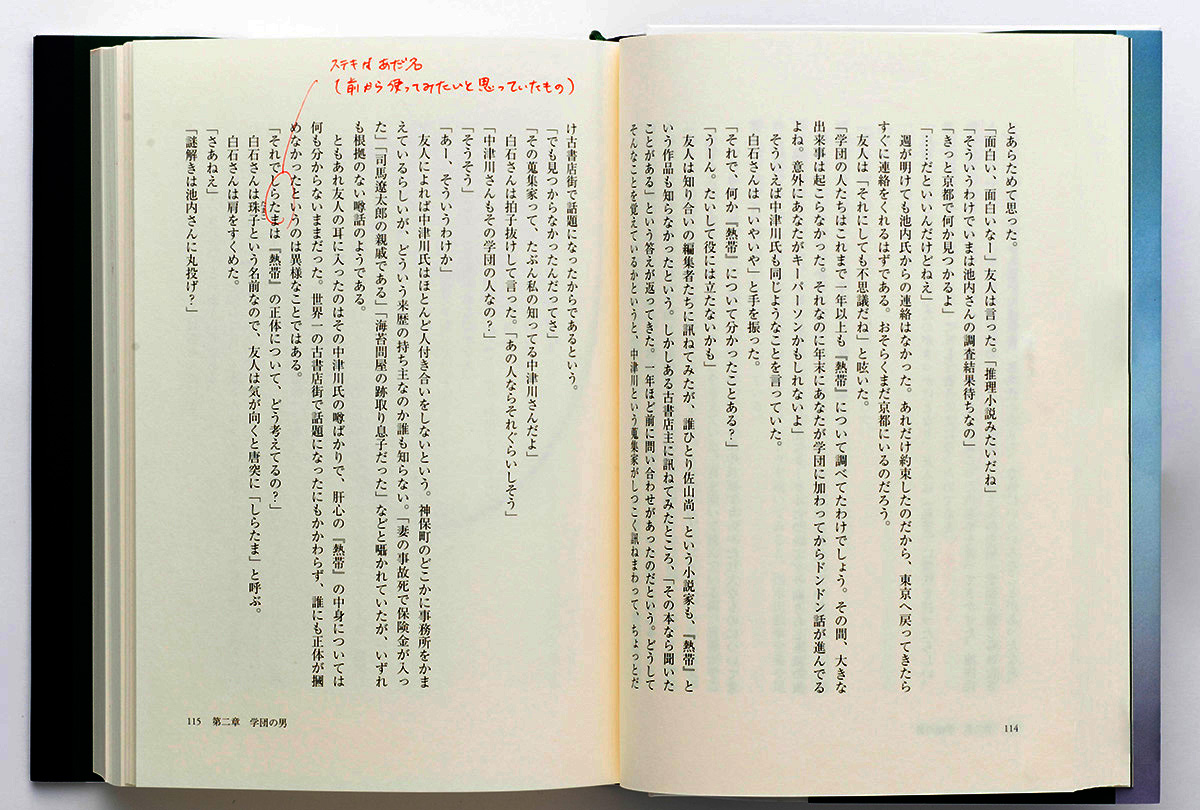 とあらためて思った。
「面白い、面白いなー」友人は言った。「推理小説みたいだね」
「そういうわけでいまは池内さんの調査結果待ちなの」
「きっと京都で何か見つかるよ」
「……だといいんだけどねえ」
週が明けても池内氏からの連絡はなかった。あれだけ約束したのだから、東京へ戻ってきたら
すぐに連絡をくれるはずである。おそらくまだ京都にいるのだろう。
友人は「それにしても不思議だね」と呟いた。
「学団の人たちはこれまで一年以上も『熱帯』について調べてたわけでしょう。その間、大きな
出来事は起こらなかった。それなのに年末にあなたが学団に加わってからドンドン話が進んでる
よね。意外にあなたがキーパーソンかもしれないよ」
そういえば中津川氏も同じようなことを言っていた。
白石さんは「いやいや」と手を振った。
「それで、何か『熱帯』について分かったことある?」
「うーん。たいして役には立たないかも」
友人は知り合いの編集者たちに訊ねてみたが、誰ひとり佐山尚一という小説家も、『熱帯』と
いう作品も知らなかったという。しかしある古書店主に訊ねてみたところ、「その本なら聞いた
ことがある」という答えが返ってきた。一年ほど前に問い合わせがあったのだという。どうして
そんなことを覚えているかというと、中津川という蒐集家がしつこく訊ねまわって、ちょっとだ
114
ステキなあだ名
(前から使ってみたいと思っていたもの)
け古書店街で話題になったからであるという。
「でも見つからなかったんだってさ」
「その蒐集家って、たぶん私の知ってる中津川さんだよ」
白石さんは拍子抜けして言った。「あの人ならそれぐらいしそう」
「中津川さんもその学団の人なの?」
「そうそう」
「あー、そういうわけか」
友人によれば中津川氏はほとんど人付き合いをしないという。神保町のどこかに事務所をかま
えているらしいが、どういう来歴の持ち主なのか誰も知らない。「妻の事故死で保険金が入っ
た」「司馬遼太郎の親戚である」「海苔問屋の跡取り息子だった」などと囁かれていたが、いずれ
も根拠のない噂話のようである。
ともあれ友人の耳に入ったのはその中津川氏の噂ばかりで、肝心の『熱帯』の中身については
何も分からないままだった。世界一の古書店街で話題になったにもかかわらず、誰にも正体が摑
めなかったというのは異様なことではある。
「それでしらたまは『熱帯』の正体について、どう考えてるの?」
白石さんは珠子という名前なので、友人は気が向くと唐突に「しらたま」と呼ぶ。
白石さんは肩をすくめた。
「さあねえ」
「謎解きは池内さんに丸投げ?」
115 第二章 学団の男